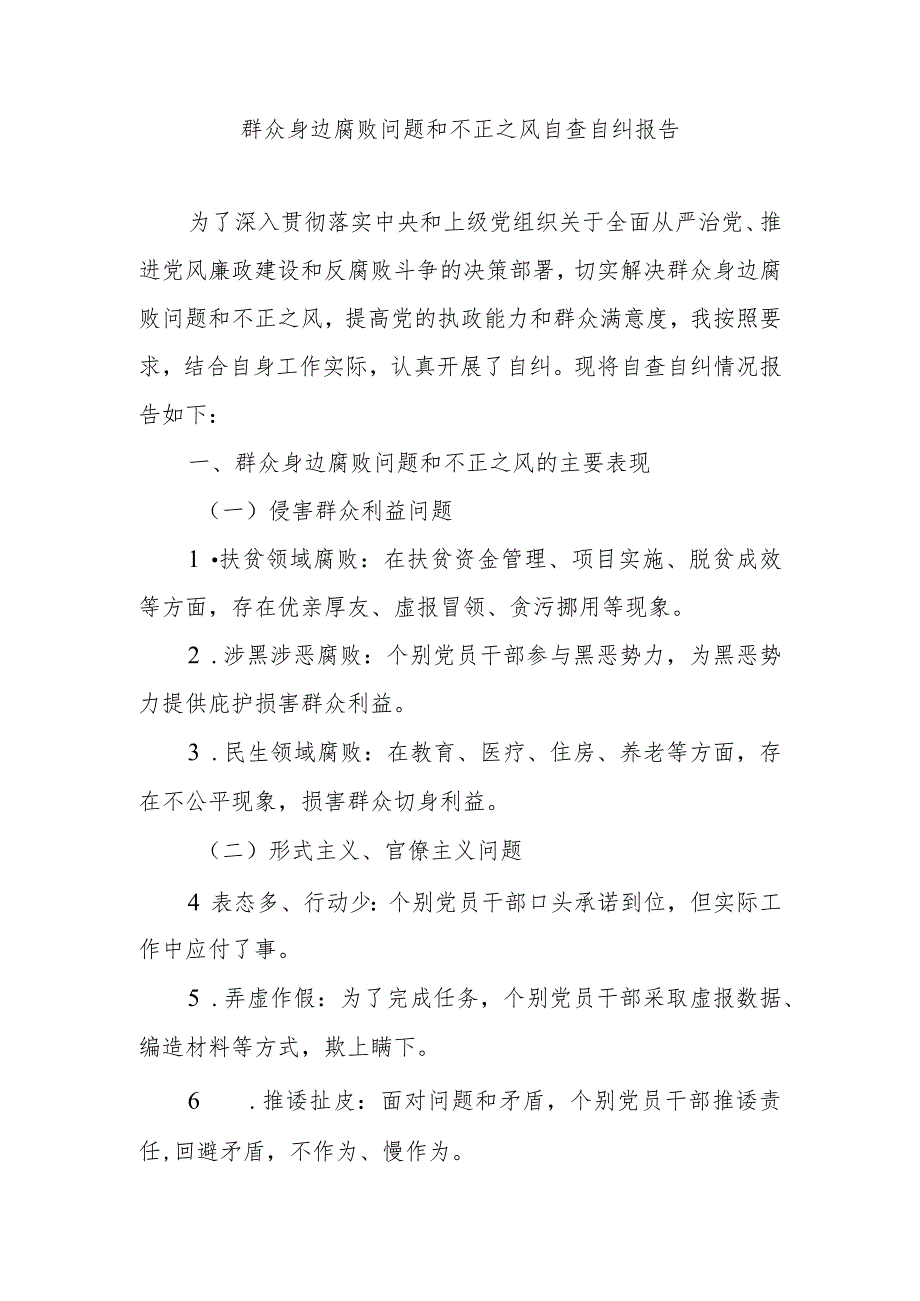 群众身边腐败问题和不正之风自查自纠报告
为了深入贯彻落实中央和上级党组织关于全面从严治党、推
进党风廉政建设和反腐败斗争的决策部署，切实解决群众身边腐
败问题和不正之风，提高党的执政能力和群众满意度，我按照要
求，结合自身工作实际，认真开展了自纠。现将自查自纠情况报
告如下：
一、群众身边腐败问题和不正之风的主要表现
（一）侵害群众利益问题
1 •扶贫领域腐败：在扶贫资金管理、项目实施、脱贫成效
等方面，存在优亲厚友、虚报冒领、贪污挪用等现象。
2 .涉黑涉恶腐败：个别党员干部参与黑恶势力，为黑恶势
力提供庇护损害群众利益。
3 .民生领域腐败：在教育、医疗、住房、养老等方面，存
在不公平现象，损害群众切身利益。
（二）形式主义、官僚主义问题
4 表态多、行动少：个别党员干部口头承诺到位，但实际工
作中应付了事。
5 .弄虚作假：为了完成任务，个别党员干部采取虚报数据、
编造材料等方式，欺上瞒下。
6 .推诿扯皮：面对问题和矛盾，个别党员干部推诿责
任,回避矛盾，不作为、慢作为。